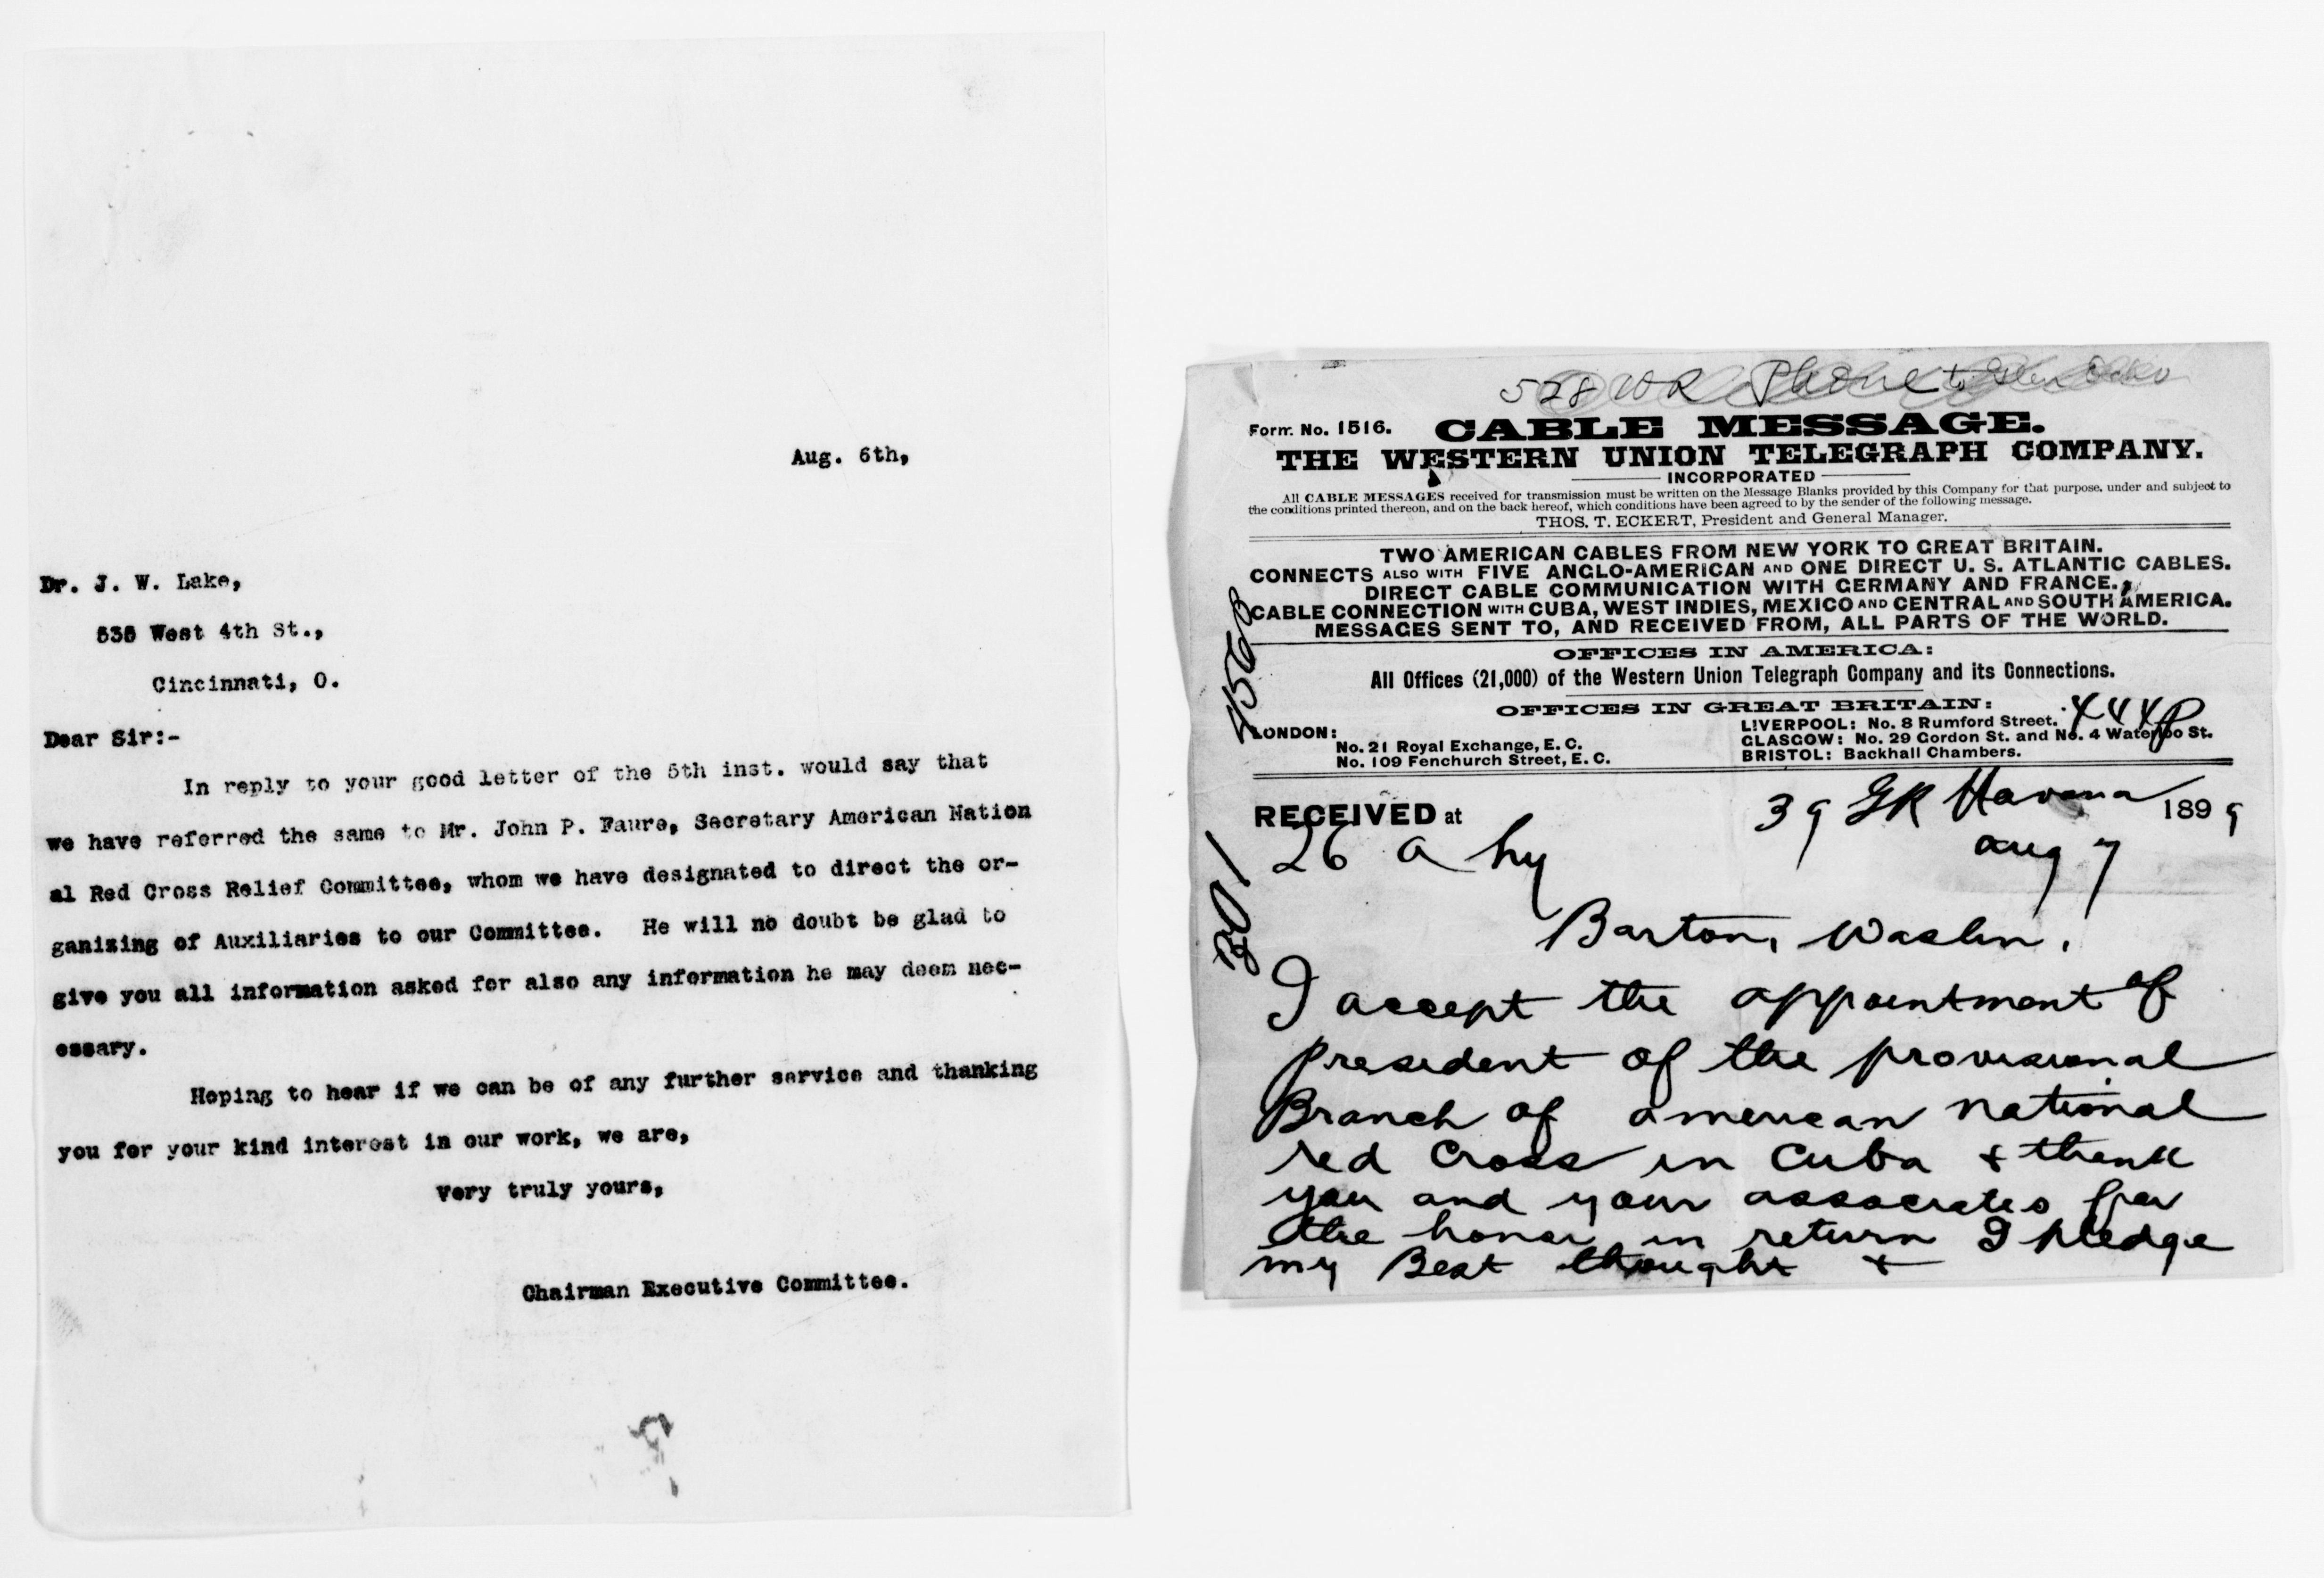 Aug. 6th,
Dr. J. W. Lake,
535 West 4th St.,
Cincinnati, O.
Dear Sir:-
In reply to your good letter of the 5th inst. would say that
we have referred the same to Mr. John P. Faure, Secretary American Nation
al Red Cross Relief Committee, whom we have designated to direct the or-
ganizing of Auxiliaries to our Committee. He will no doubt be glad to
give you all information asked for also any information he may deem nec-
essary.
Hoping to hear if we can be of any further service and thanking
you for your kind interest in our work, we are,
Very truly yours,
Chairman Executive Committee.
528 WR Phone to Glen Echo
Form No. 1516. CABLE MESSAGE.
THE WESTERN UNION TELEGRAPH COMPANY.
INCORPORATED
All CABLE MESSAGES received for transmission must be written on the Message Blanks provided by this Company for that purpose, under and subject to
the conditions printed thereon, and on the back hereof, which conditions have been agreed to by the sender of the following message.
THOS. T. ECKERT, President and General Manager.
TWO AMERICAN CABLES FROM NEW YORK TO GREAT BRITAIN.
CONNECTS ALSO WITH FIVE ANGLO-AMERICAN AND ONE DIRECT U. S. ATLANTIC CABLES.
DIRECT CABLE COMMUNICATION WITH GERMANY AND FRANCE.
CABLE CONNECTION WITH CUBA, WEST INDIES, MEXICO AND CENTRAL AND SOUTH AMERICA.
MESSAGES SENT TO, AND RECEIVED FROM, ALL PARTS OF THE WORLD.
OFFICES IN AMERICA:
All Offices (21,000) of the Western Union Telegraph Company and its Connections.
OFFICES IN GREAT BRITAIN:
LONDON:
No. 21 Royal Exchange, E. C.
No. 109 Fenchurch Street, E. C.
LIVERPOOL: No. 8 Rumford Street.
GLASGOW: No. 29 Gordon St. and No. 4 Waterloo St.
BRISTOL: Backhall Chambers.
444P
RECEIVED at 39 GR Havana 1899
26 a hy aug 7
801
Barton, Washn.
I accept the appointment of
president of the provisional
Branch of american national
red Cross in Cuba & thank
you and your associates for
the honor in return I pledge
my Best thought &